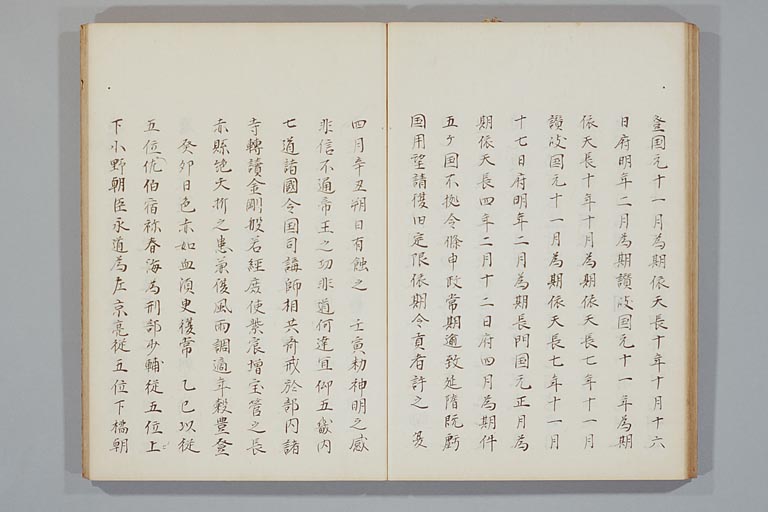 登国元十一月為期依天長十年十月十六
日府明年二月為期讃岐国元十一年為期
依天長十年十月為期依天長七年十一月
讃岐国元十一月為期依天長七年十一月
十七日府明年二月為期長門国元正月為
期依天長四年二月十二日府四月為期件
五ケ国不拠令條申政常期逾致延隋既虧
国用望請復旧定限依期令貢者許之
四月辛丑朔日有蝕之 壬寅勅神明之感
非信不通帝王之功非道何達宜仰五畿内
七道諸國令国司講師相共斎戒於部内諸
寺轉讀金剛般若經庶使紫宸増宝管之長
赤縣絶夭折之患兼復風雨調適年穀豊登
癸卯日色赤如血須臾復常 乙巳以従
五位伉伯宿祢春海為刑部少輔従五位上
下小野朝臣永道為左京亮従五位下橘朝